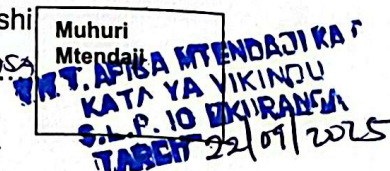 shi
Muhuri
Mtendaji
AFISA MTENDAJI KATA
KATA YA VIKINDU
S.L.P. 10 MKURANGA
TAREHE 22/09/2025